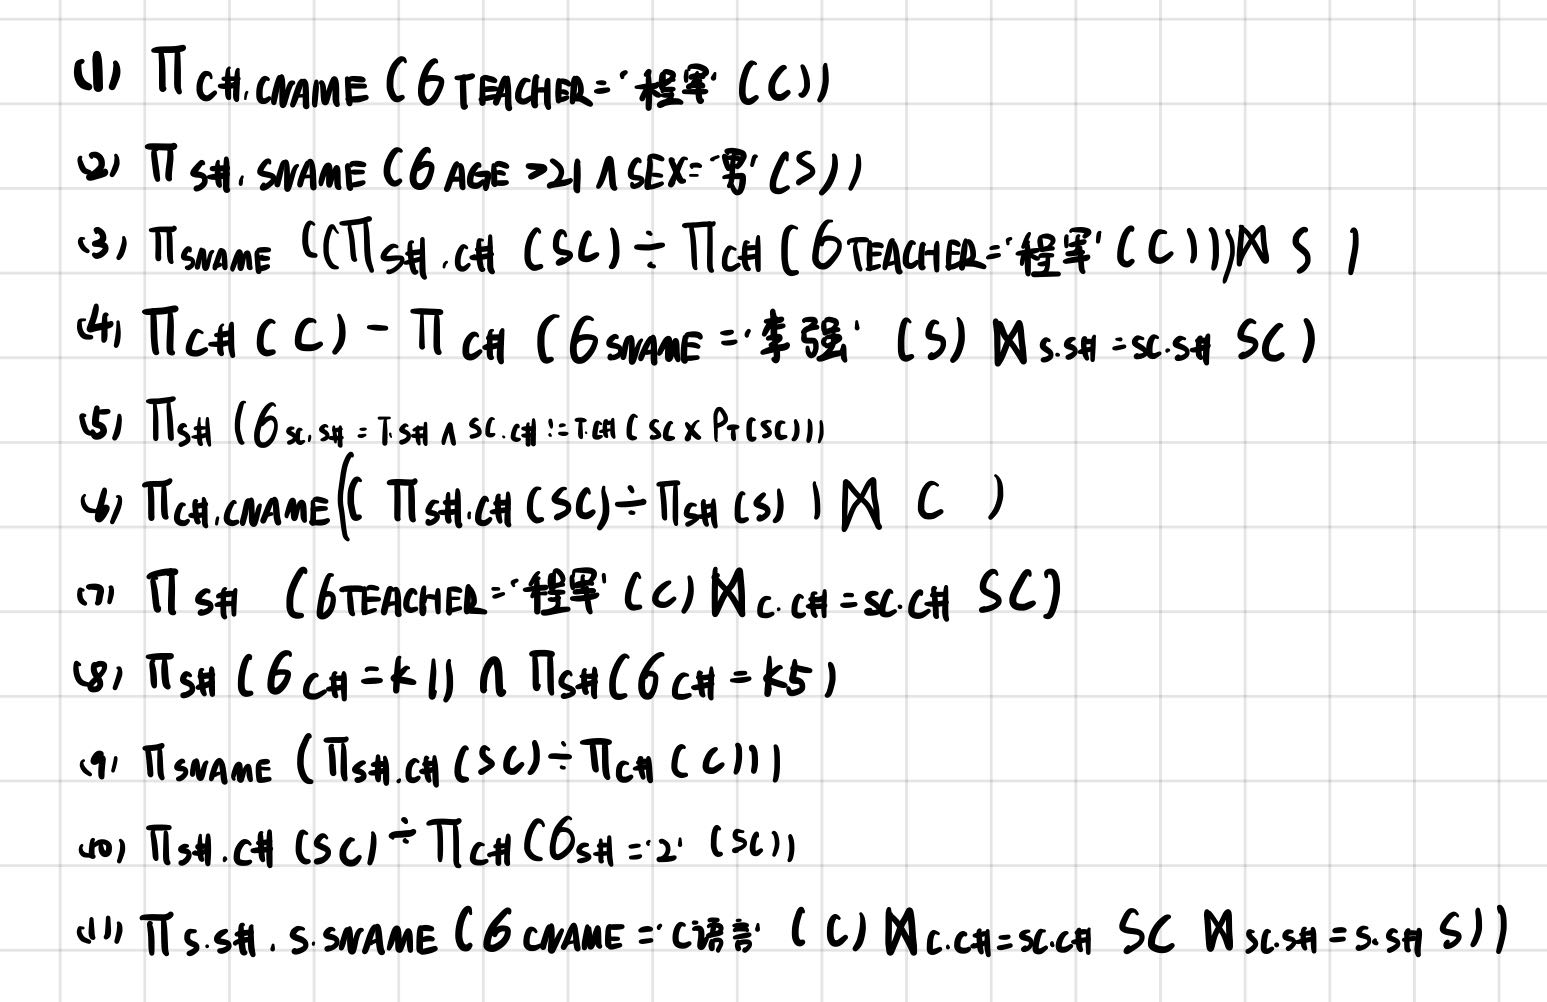 (1) Π C#.CNAME (б TEACHER='程军' (C))
(2) Π S#.SNAME (б AGE >21 ∧ SEX='男' (S))
(3) Π SNAME ((Π S#.C# (SC) ÷ Π C# (б TEACHER='程军' (C))) ⋈ S )
(4) Π C# (C) - Π C# (б SNAME ='李强' (S) ⋈ S.S#=SC.S# SC)
(5) Π S# (б SC.S#=T.S# ∧ SC.C# != T.C# (SC × P T (SC)))
(6) Π C#.CNAME (( Π S#.C# (SC) ÷ Π S# (S) ) ⋈ C )
(7) Π S# (б TEACHER='程军' (C) ⋈ C.C#=SC.C# SC)
(8) Π S# (б C# = k1) ∩ Π S# (б C# = k5)
(9) Π SNAME (Π S#.C# (SC) ÷ Π C# (C)))
(10) Π S#.C# (SC) ÷ Π C# (б S#='2' (SC))
(11) Π S.S#.S.SNAME (б CNAME ='C语言' (C) ⋈ C.C#=SC.C# SC ⋈ SC.S#=S.S# S))